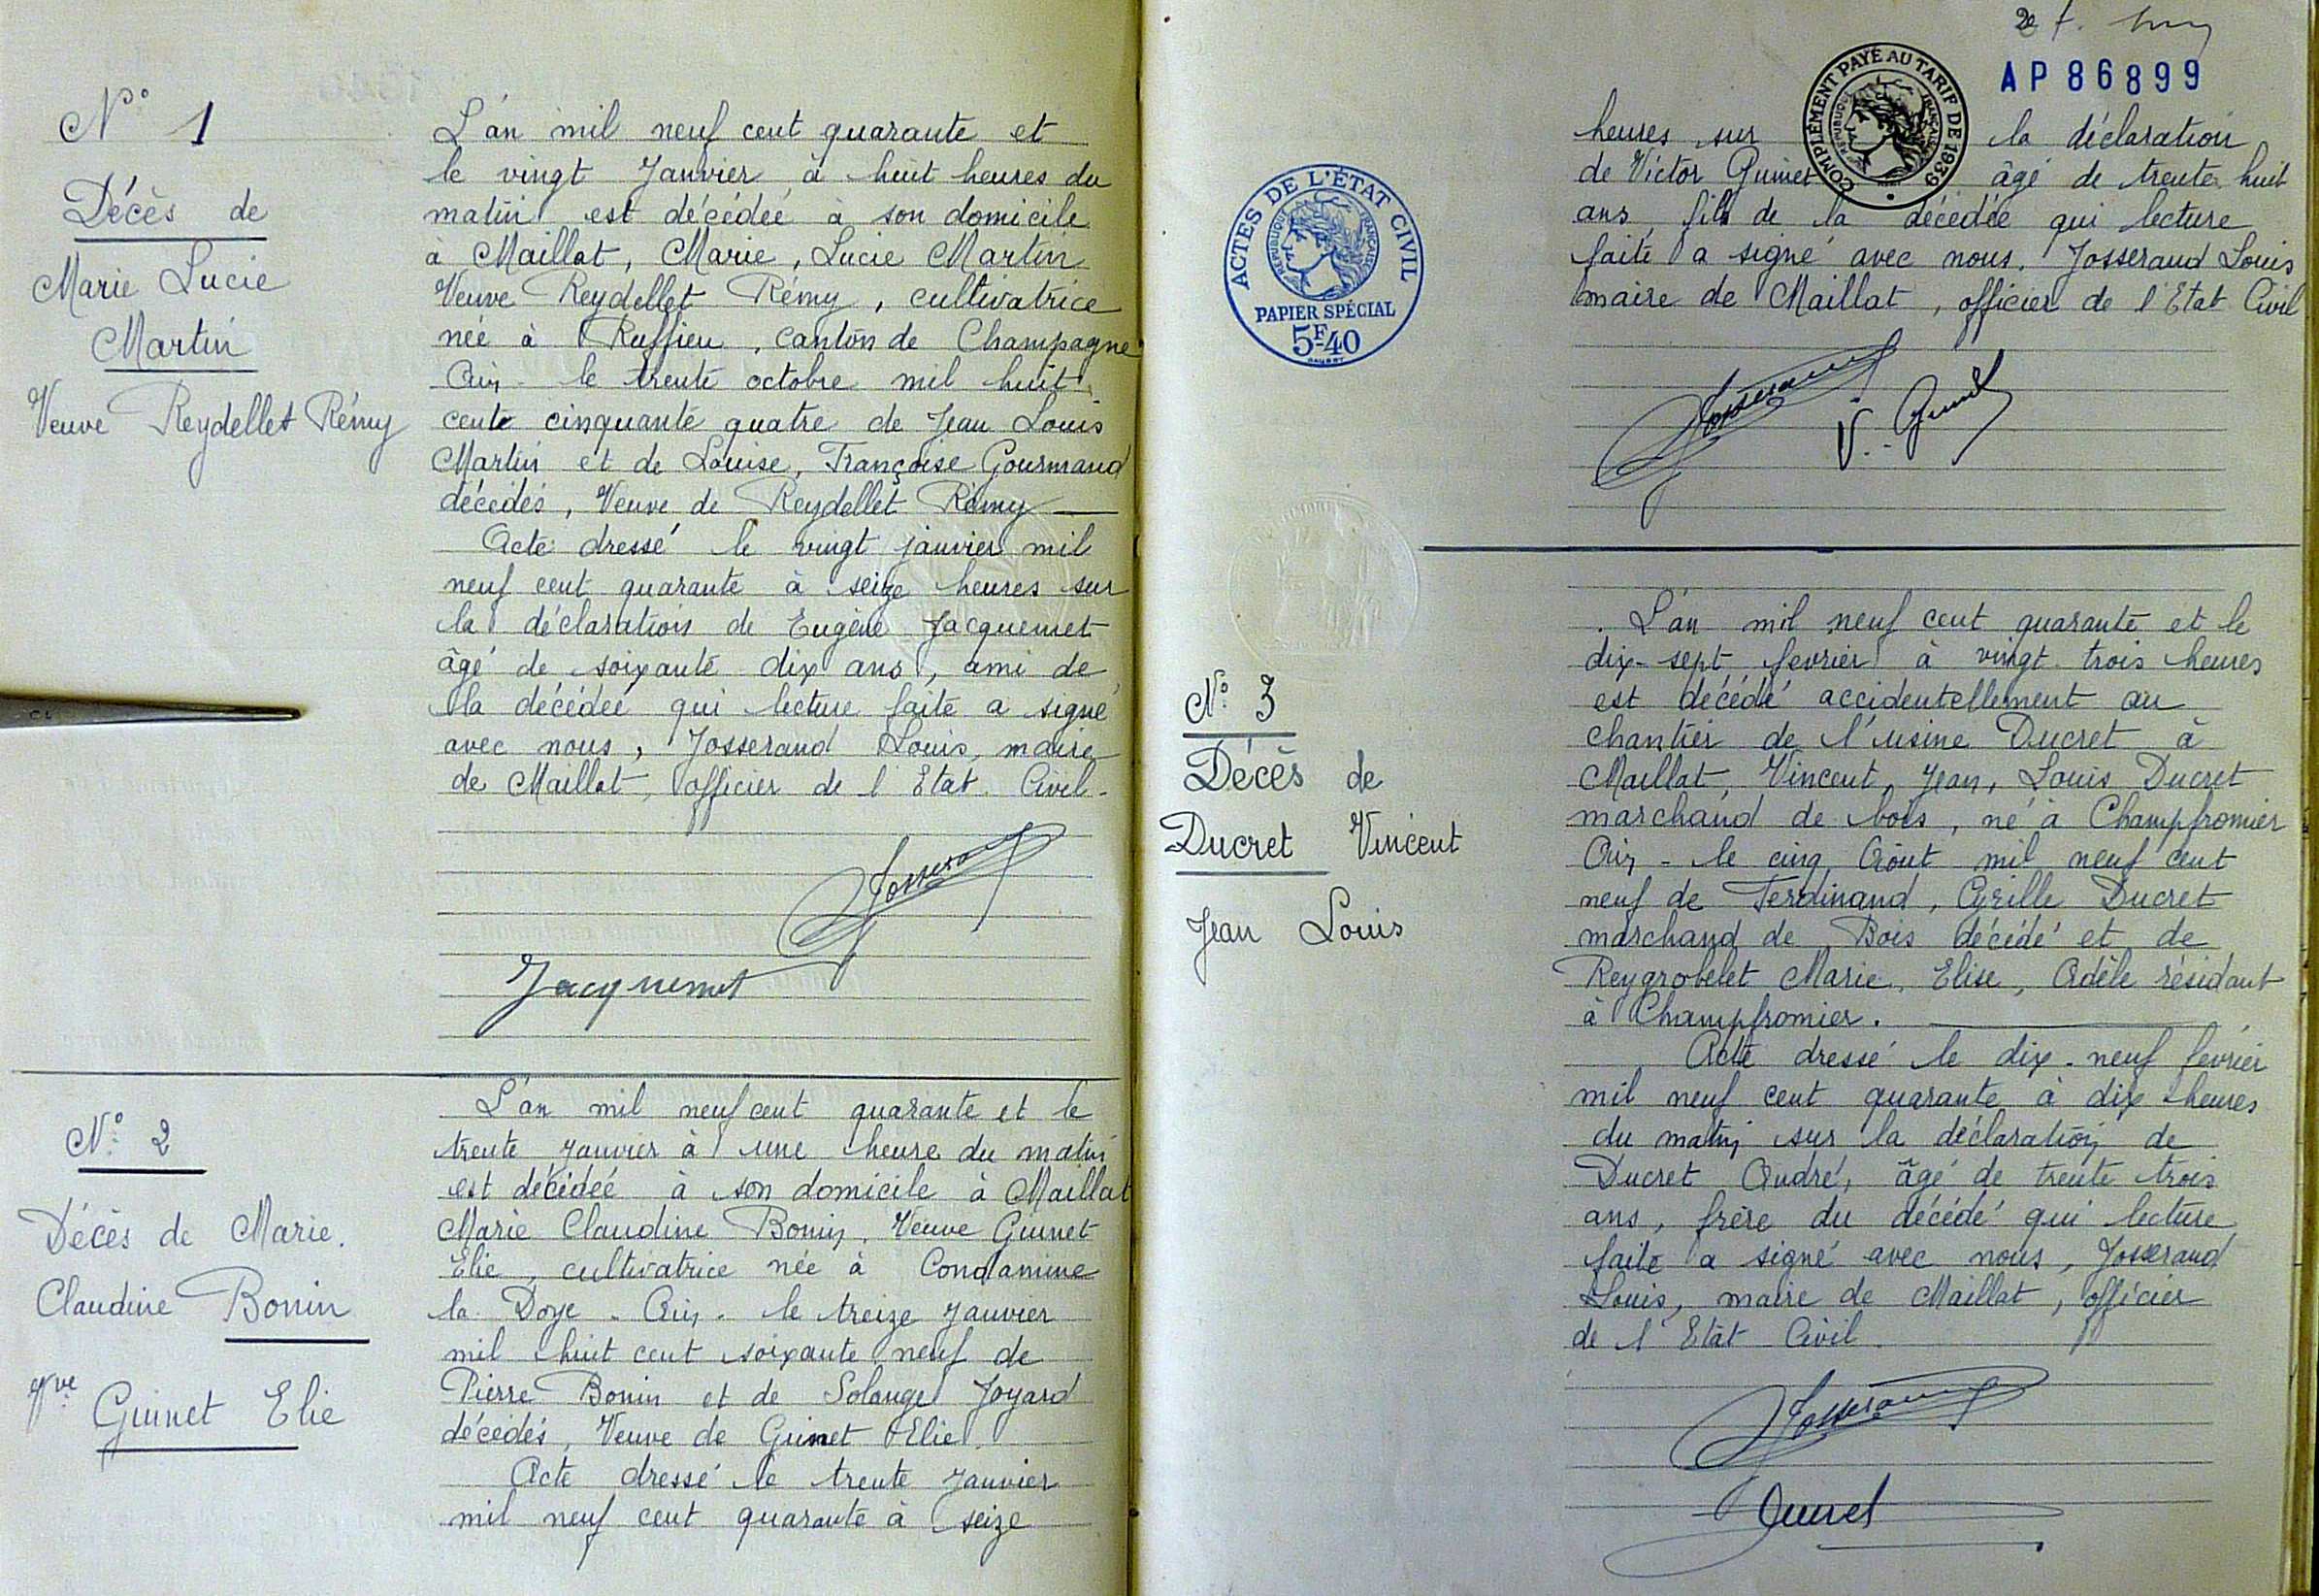 N° 1
Décès de
Marie Lucie
Martin
Veuve Reydellet Rémy
L'an mil neuf cent quarante et
le vingt Janvier à huit heures du
matin est décédée à son domicile
à Maillat, Marie, Lucie Martin
Veuve Reydellet Rémy, cultivatrice
née à Ruffieu, canton de Champagne
Ain - le trente octobre mil huit
cent cinquante quatre de Jean Louis
Martin et de Louise, Françoise Gourmand
décédés, Veuve de Reydellet Rémy
Acte dressé le vingt janvier mil
neuf cent quarante à seize heures sur
la déclaration de Eugène Jacquemet
âgé de soixante dix ans, ami de
la décédée qui lecture faite a signé
avec nous, Josserand Louis, maire
de Maillat, officier de l'Etat Civil.
Josserand
Jacquemet
N° 2
Décès de Marie.
Claudine Bonin
Vve
Guinet Elie
L'an mil neuf cent quarante et le
trente Janvier à une heure du matin
est décédée à son domicile à Maillat
Marie Claudine Bonin, Veuve Guinet
Elie, cultivatrice née à Condamine
la Doye - Ain - le treize Janvier
mil huit cent soixante neuf de
Pierre Bonin et de Solange Joyard
décédés, Veuve de Guinet Elie.
Acte dressé le trente Janvier
mil neuf cent quarante à seize
AP 86899
COMPLÉMENT PAYÉ AU TARIF DE 1939
RÉPUBLIQUE FRANÇAISE
heures sur la déclaration
de Victor Guinet âgé de trente huit
ans, fils de la décédée qui lecture
faite a signé avec nous. Josserand Louis
maire de Maillat, officier de l'Etat Civil
Josserand
V. Guinet
ACTES DE L'ÉTAT CIVIL
RÉPUBLIQUE FRANÇAISE
PAPIER SPÉCIAL
5F40
N° 3
Décès de
Ducret Vincent
Jean Louis
L'an mil neuf cent quarante et le
dix-sept fevrier à vingt trois heures
est décédé accidentellement au
chantier de l'usine Ducret à
Maillat, Vincent, Jean, Louis Ducret
marchand de bois, né à Champfromier
Ain - le cinq Août mil neuf cent
neuf de Ferdinand, Cyrille Ducret
marchand de Bois décédé et de
Reygrobelet Marie, Elise, Adèle résidant
à Champfromier.
Acte dressé le dix-neuf fevrier
mil neuf cent quarante à dix heures
du matin sur la déclaration de
Ducret André, âgé de trente trois
ans, frère du décédé qui lecture
faite a signé avec nous, Josserand
Louis, maire de Maillat, officier
de l'Etat Civil.
Josserand
Ducret